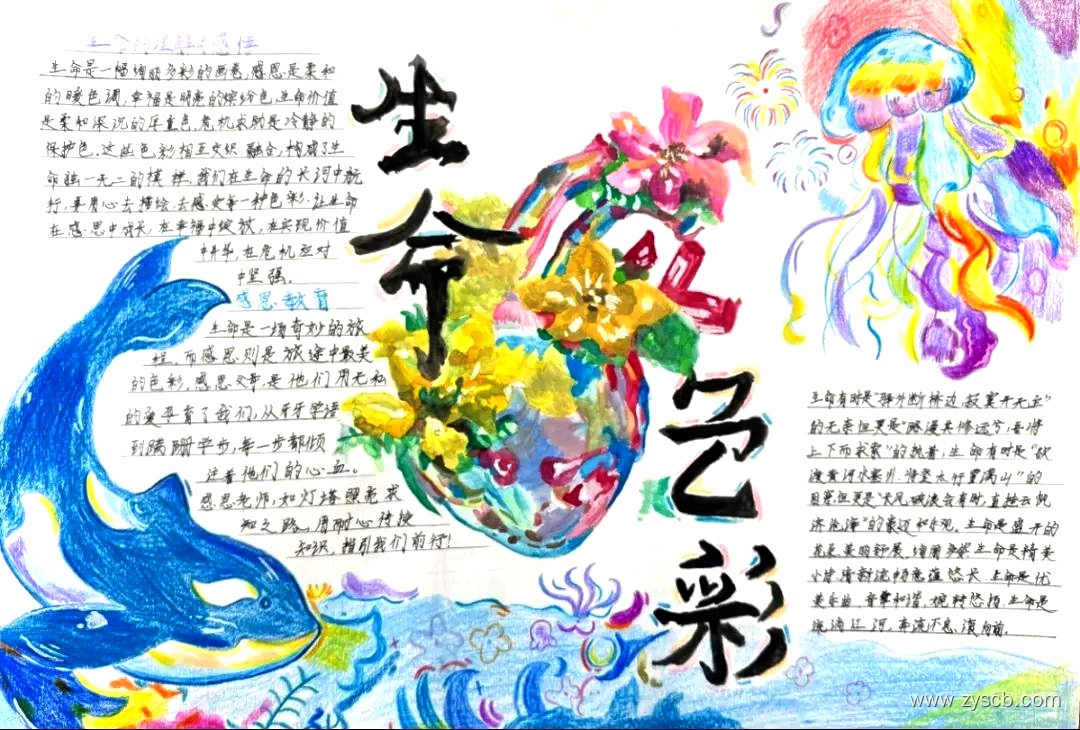 生命之色彩
生命的理解与感悟
生命是一幅绚丽多彩的画卷,感恩是柔和
的暖色调,幸福是明亮的缤纷色,生命价值
是柔和深沉的厚重色,危机求助是冷静的
保护色.这些色彩相互交织融合,构成了生
命独一无二的模样.我们在生命的长河中航
行,要用心去描绘,去感受每一种色彩.让生命
在感恩中成长,在幸福中绽放,在实现价值
中升华,在危机应对
中坚强.
感恩教育
生命是一场奇妙的旅
程,而感恩则是旅途中最美
的色彩,感恩父母是他们用无私
的爱孕育了我们,从牙牙学语
到蹒跚学步,每一步都倾
注着他们的心血。
感恩老师,如灯塔照亮求
知之路,用耐心传授
知识,指引我们前行!
生命有时是"驿外断桥边,寂寞开无主"
的无奈但更是"路漫其修远兮,吾将
上下而求索"的执着,生命有时是"欲
渡黄河冰塞川,将登太行雪满山"的
困窘但更是"长风破浪会有时,直挂云帆
济沧海"的豪迈和乐观.生命是盛开的
花朵,美丽舒展,绚丽多姿.生命是精美
小诗,清新流畅,意蕴悠长.生命是优
美乐曲,音律和谐,婉转悠扬.生命是
流淌江河,奔流不息,滚向前.
www.zyscb.com